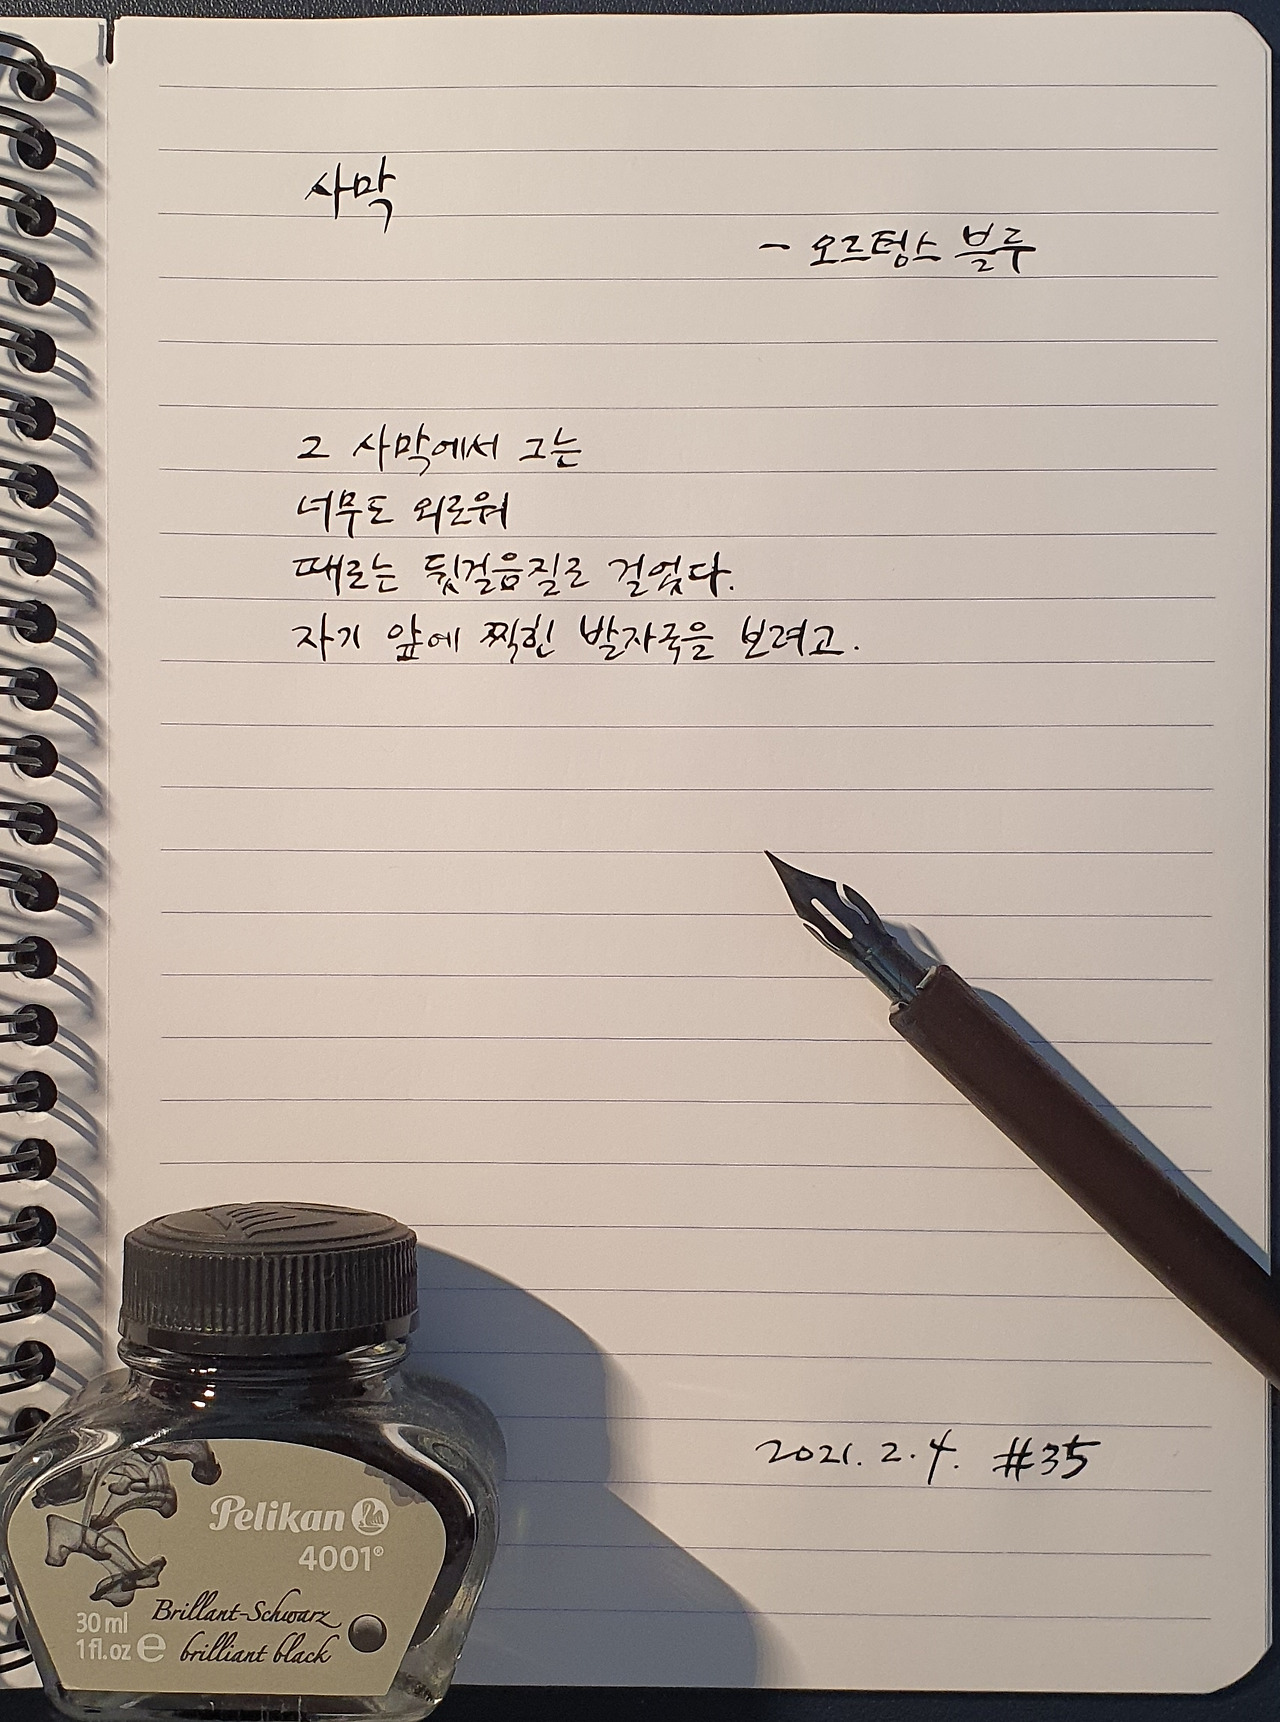 사막
- 오르텅스 블루
그 사막에서 그는
너무도 외로워
때로는 뒷걸음질로 걸었다.
자기 앞에 찍힌 발자국을 보려고.
2021. 2. 4. #35
Pelikan
4001®
Brillant-Schwarz
brilliant black
30 ml
1 fl.oz e